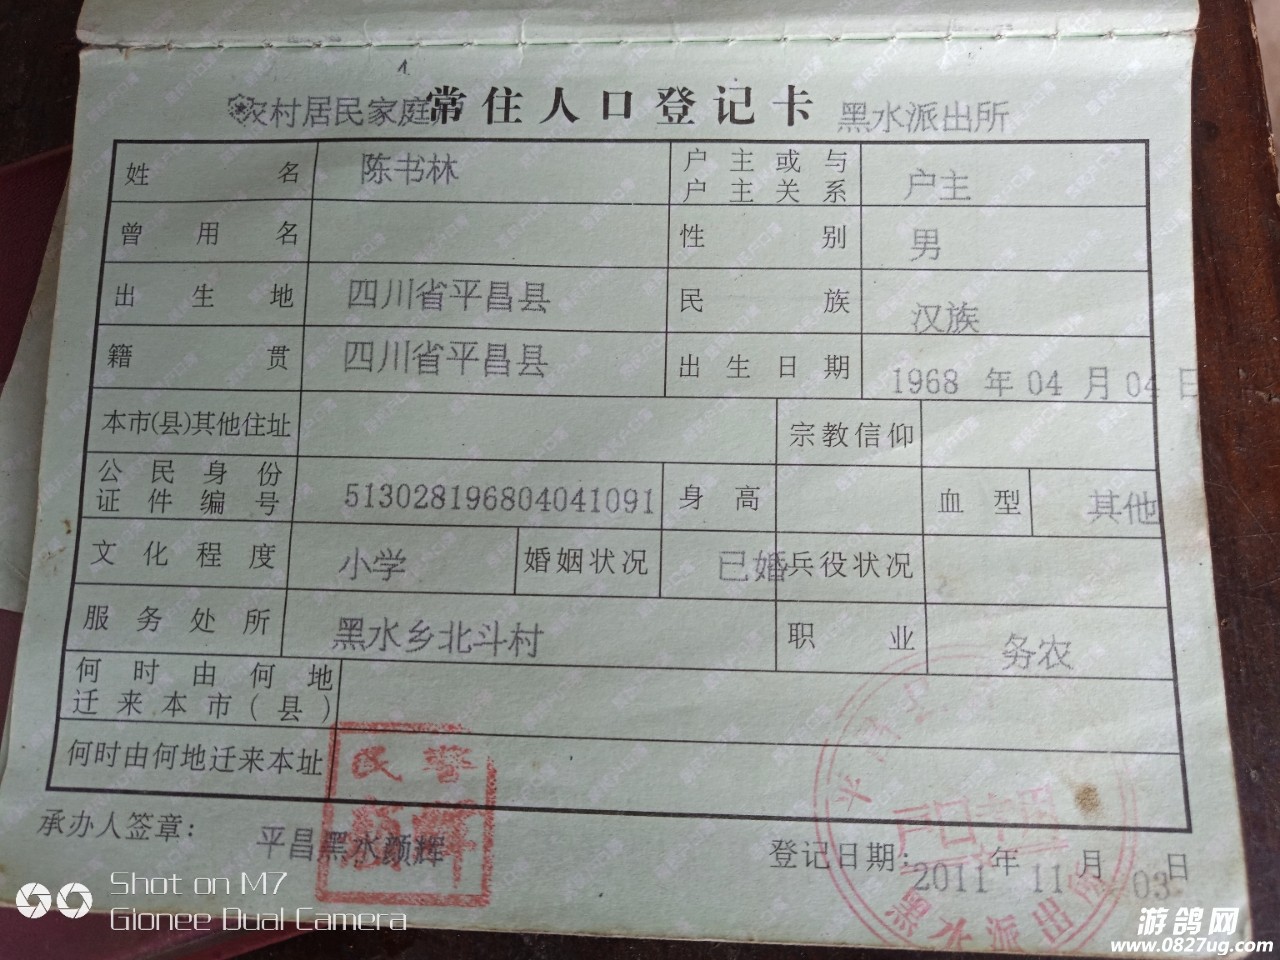 农村居民家庭 常住人口登记卡 黑水派出所
姓名 陈书林 户主或与户主关系 户主
曾用名 性别 男
出生地 四川省平昌县 民族 汉族
籍贯 四川省平昌县 出生日期 1968 年 04 月 04 日
本市(县)其他住址 宗教信仰
公民身份证件编号 513028196804041091 身高 血型 其他
文化程度 小学 婚姻状况 已婚 兵役状况
服务处所 黑水乡北斗村 职业 务农
何时由何地迁来本市(县)
何时由何地迁来本址
民警
承办人签章: 平昌黑水颜辉 登记日期: 2011 年 11 月 03 日
户口专用
黑水派出所
Shot on M7
Gionee Dual Camera
游鸽网
www.0827ug.com